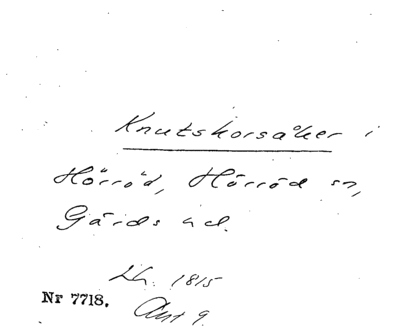 Knutskorsåker i
Hörröd, Hörröd sn,
Gärds hd.
Lh. 1815
Nr 7718.
Akt 9